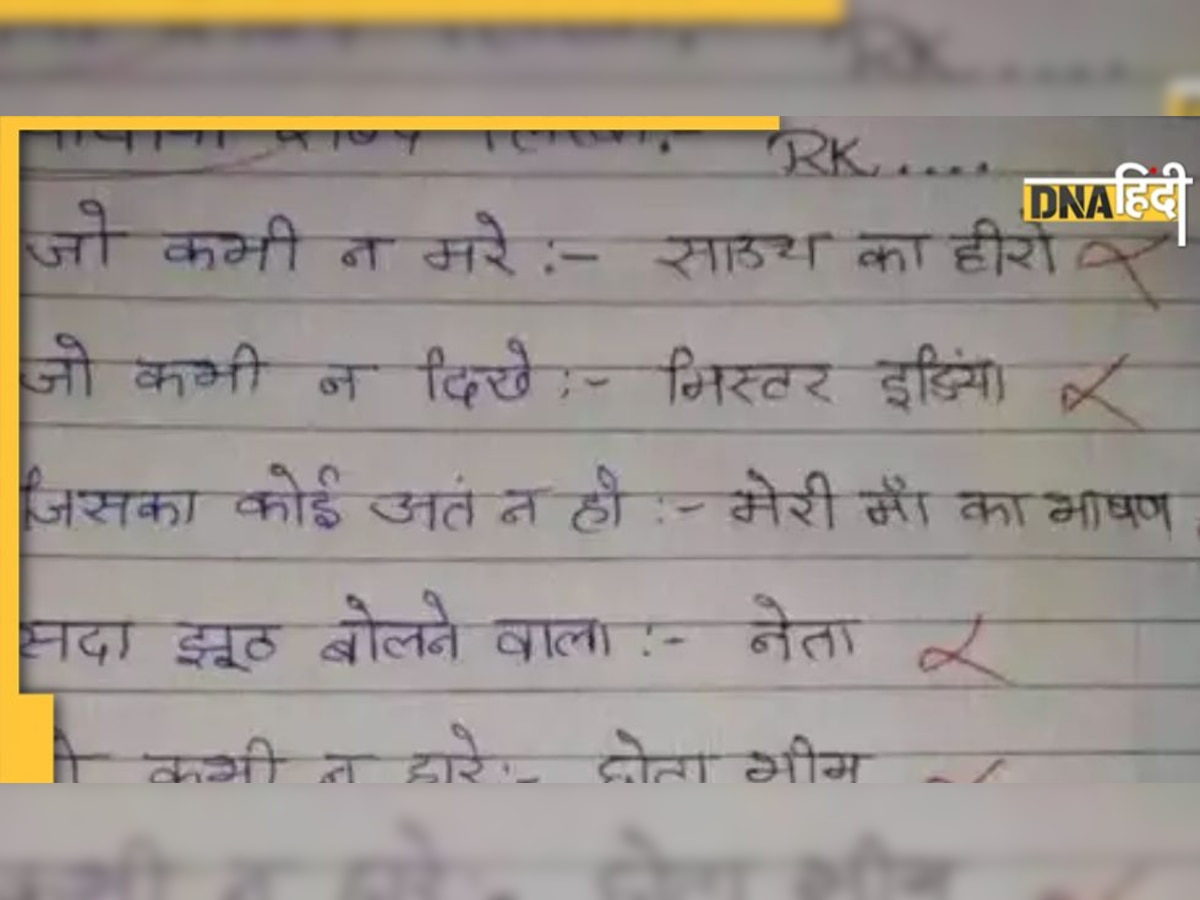 RK....
DNA हिंदी
जो कभी न मरे :- साउथ का हीरो
जो कभी न दिखे :- मिस्टर इडिंया
जिसका कोई अतं न हो :- मेरी माँ का भाषण
सदा झूठ बोलने वाला :- नेता
कभी न हारे :- छोटा भीम